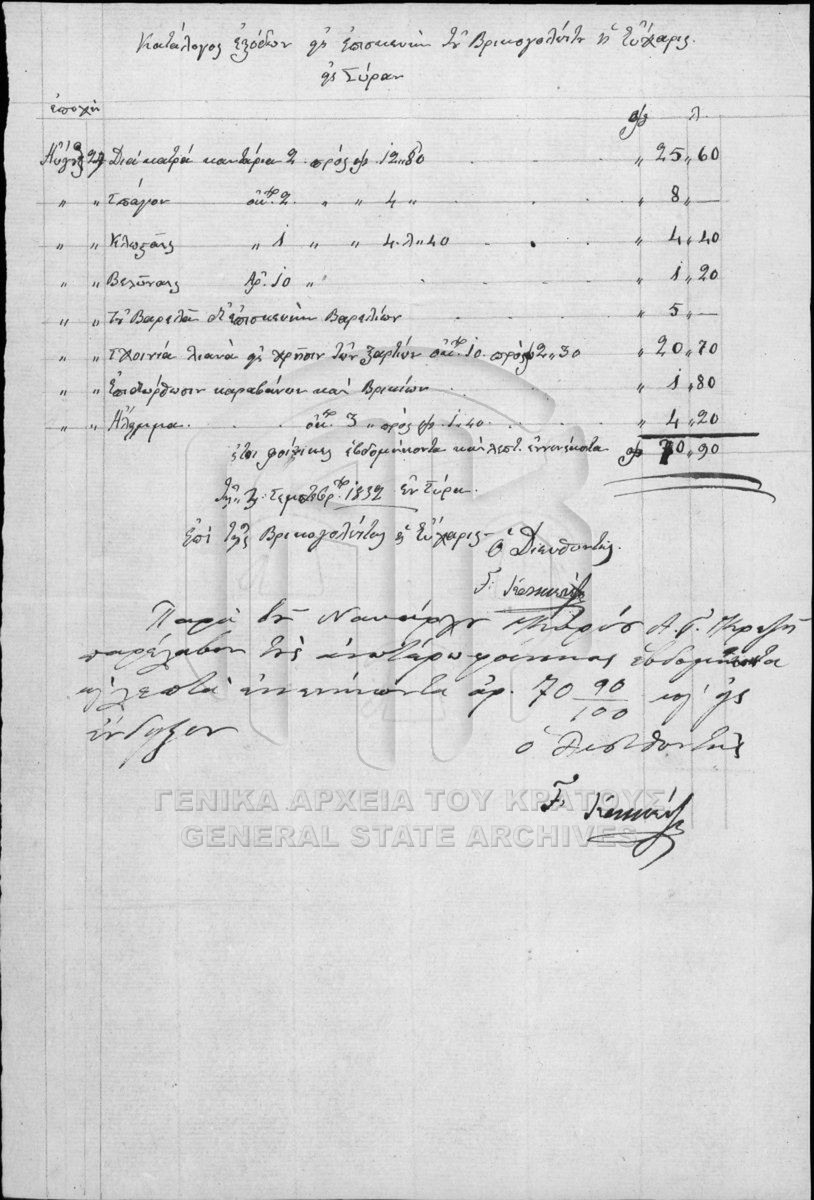 Κατάλογος ἐξόδων εἰς ἐπισκευὴν τῆς Βρικογολέττας ἡ Εὔχαρις
εἰς Σύραν
ἐποχή φρ λ.
Αὔγςτ 27 Διὰ κατρὰ καντάρια 2. πρὸς φρ 12„80 „ 25„60
„ „ Σπάγον ὀκ. 2. „ „ 4 „ „ 8„—
„ „ Κλωστὰς „ 1 „ „ 4. λ„40 „ 4„40
„ „ Βελόνας Ἀρ. 10 „ „ 1„20
„ „ Τοῦ Βαρελᾶ δι' ἐπισκευὴν Βαρελίων „ 5„—
„ „ Σχοινία λιανὰ εἰς χρῆσιν τῶν ξαρτίων ὀκ. 10. πρὸς 2„30 „ 20„70
„ „ Ἐπιδιόρθωσιν καραβάνων καὶ Βρικίων „ 1„80
„ „ Ἄλειμμα ὀκ. 3 „ πρὸς φρ. 1„40 „ 4„20
ἤτοι φοίνικες ἑβδομήκοντα καὶ λεπτ. ἐννενήκοντα φρ 70„90
Τῇ Σεπτεμβρ. 1832 ἐν Σύρα.
Ἐπὶ τῆς Βρικογολέττας ἡ Εὔχαρις Ὁ Διευθυντής
Παρὰ τοῦ Ναυάρχου Κυρίου Α. Γ. Κριεζῆ
παρέλαβον τοὺς ἀνωτέρω φοίνικας ἑβδομήκοντα
καὶ λεπτὰ ἐννενήκοντα ἀρ. 70 90/100 καὶ εἰς
ἔνδειξιν
ὁ Διευθυντής
ΓΕΝΙΚΑ ΑΡΧΕΙΑ ΤΟΥ ΚΡΑΤΟΥΣ
GENERAL STATE ARCHIVES